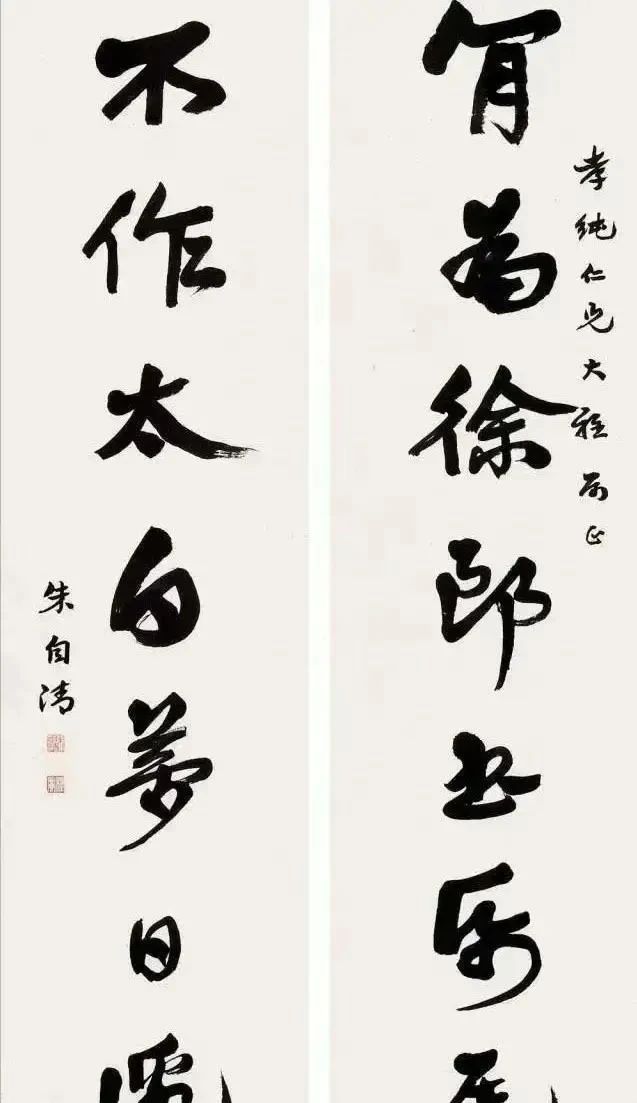 孝純仁兄大雅屬正
肎為徐郎書紙
不作太白夢日
朱自清